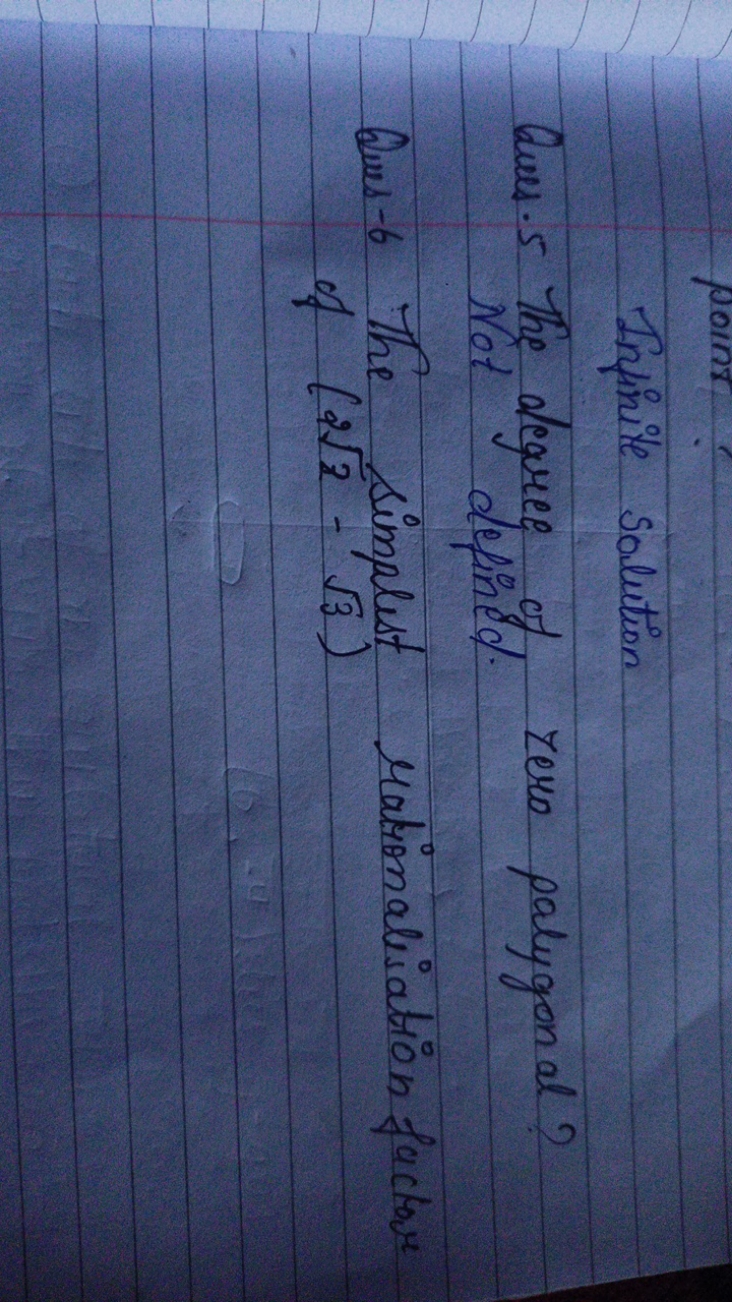 point ?
Infinite Solution
Ques.5 The degree of zero polygonal?
Not defined.
Ques-6 The simplest rationalisation factor
of (2√2 - √3)